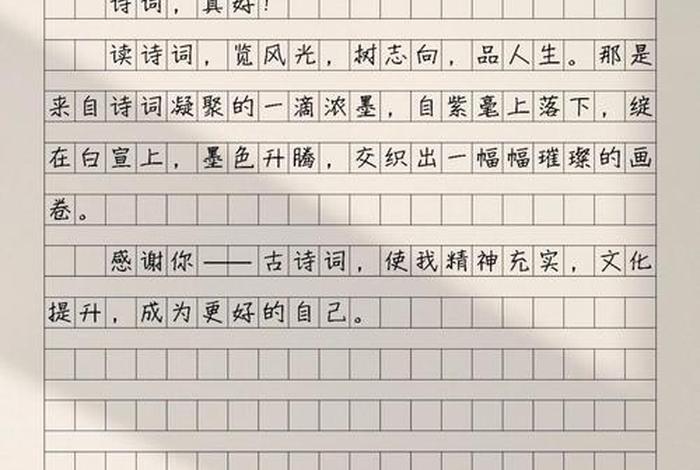 诗词，真好！
读诗词，览风光，树志向，品人生。那是
来自诗词凝聚的一滴浓墨，自紫毫上落下，绽
在白宣上，墨色升腾，交织出一幅幅璀璨的画
卷。
感谢你——古诗词，使我精神充实，文化
提升，成为更好的自己。